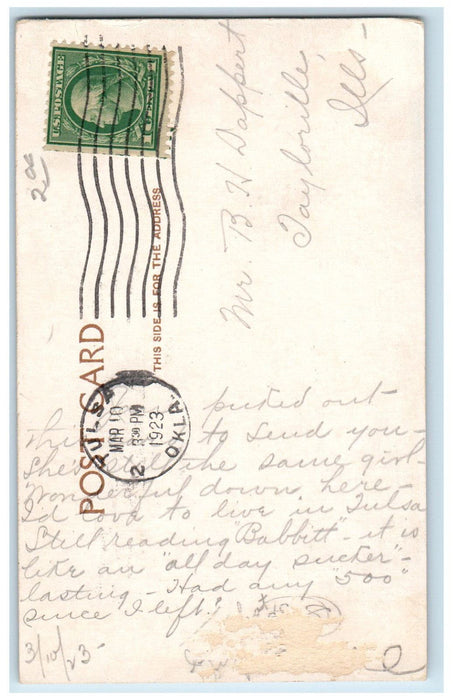 U.S. POSTAGE
2 00
POST CARD
THIS SIDE IS FOR THE ADDRESS
TULSA
MAR 10
3 30 PM
1923
OKLA.
2
Mr. B H Dappert
Taylorville,
Ills-
picked out
this to send you-
She's still the same girl-
Wonderful down here
I'd love to live in Tulsa
Still reading "Babbitt"- it is
like an "all day sucker"-
lasting - Had any "500"
since I left?
3/10/23-